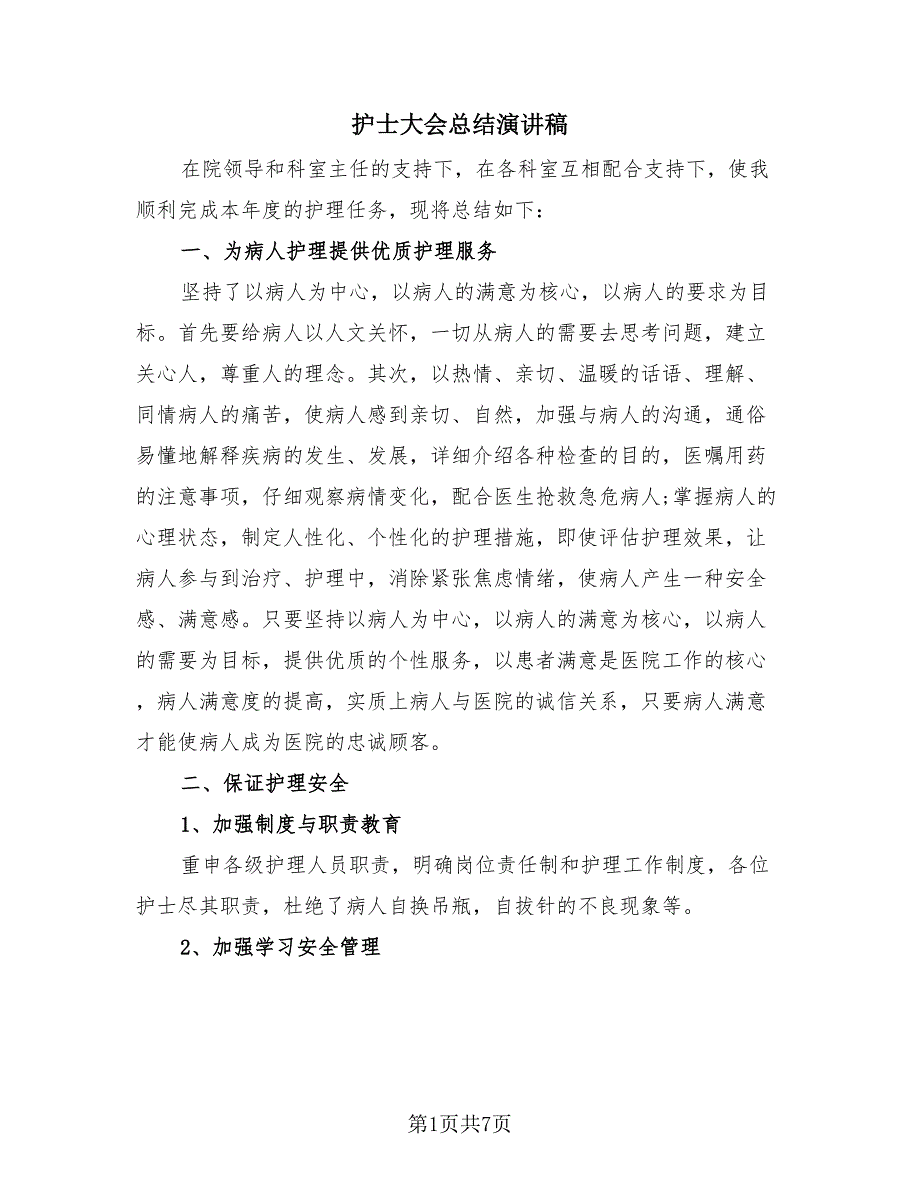 护士大会总结演讲稿
在院领导和科室主任的支持下，在各科室互相配合支持下，使我
顺利完成本年度的护理任务，现将总结如下：
一、为病人护理提供优质护理服务
坚持了以病人为中心，以病人的满意为核心，以病人的要求为目
标。首先要给病人以人文关怀，一切从病人的需要去思考问题，建立
关心人，尊重人的理念。其次，以热情、亲切、温暖的话语、理解、
同情病人的痛苦，使病人感到亲切、自然，加强与病人的沟通，通俗
易懂地解释疾病的发生、发展，详细介绍各种检查的目的，医嘱用药
的注意事项，仔细观察病情变化，配合医生抢救急危病人;掌握病人的
心理状态，制定人性化、个性化的护理措施，即使评估护理效果，让
病人参与到治疗、护理中，消除紧张焦虑情绪，使病人产生一种安全
感、满意感。只要坚持以病人为中心，以病人的满意为核心，以病人
的需要为目标，提供优质的个性服务，以患者满意是医院工作的核心
，病人满意度的提高，实质上病人与医院的诚信关系，只要病人满意
才能使病人成为医院的忠诚顾客。
二、保证护理安全
1、加强制度与职责教育
重申各级护理人员职责，明确岗位责任制和护理工作制度，各位
护士尽其职责，杜绝了病人自换吊瓶，自拔针的不良现象等。
2、加强学习安全管理
第1页共7页